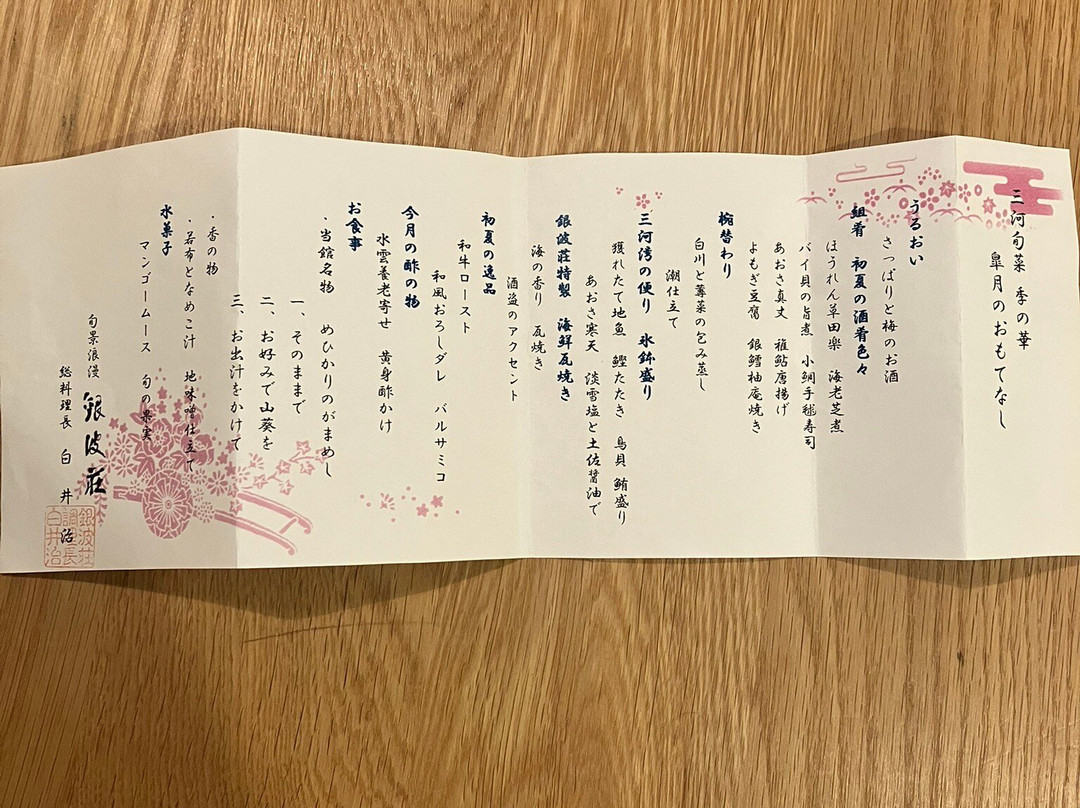 三河旬菜 季の華
皐月のおもてなし
うるおい
さっぱりと梅のお酒
組肴 初夏の酒肴色々
ほうれん草田楽 海老芝煮
バイ貝の旨煮 小鯛手毬寿司
あおさ真丈 稚鮎唐揚げ
よもぎ豆腐 銀鱈柚庵焼き
椀替わり
白川と蓴菜の包み蒸し
潮仕立て
三河湾の便り 氷鉢盛り
獲れたて地魚 鰹たたき 鳥貝 鮪盛り
あおさ寒天 淡雪塩と土佐醤油で
銀波荘特製 海鮮瓦焼き
海の香り 瓦焼き
酒盗のアクセント
初夏の逸品
和牛ロースト
和風おろしダレ バルサミコ
今月の酢の物
水雲養老寄せ 黄身酢かけ
お食事
・当館名物 めひかりのがまめし
一、そのままで
二、お好みで山葵を
三、お出汁をかけて
・香の物
・若布となめこ汁 地味噌仕立て
水菓子
マンゴームース 旬の果実
旬景浪漫 銀波荘
総料理長 白井 治
銀波荘
調理長
白井治